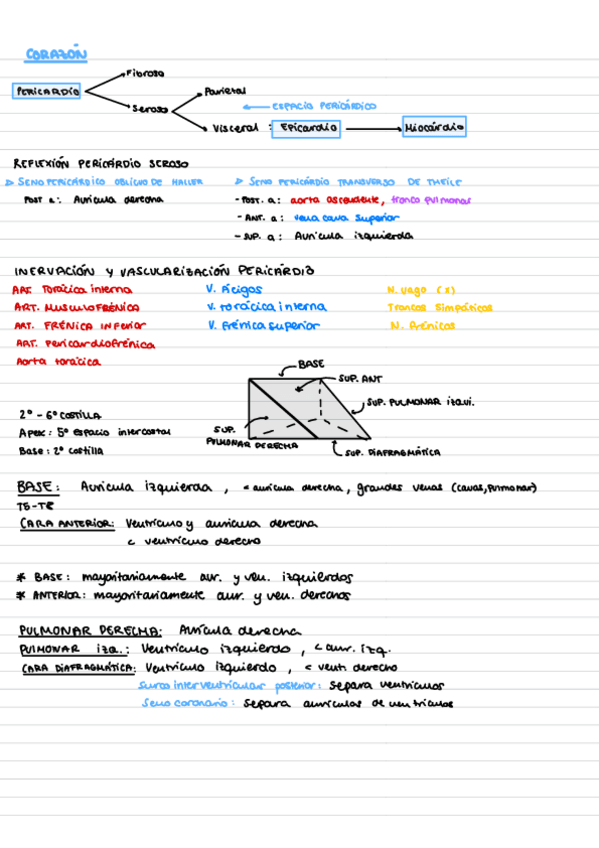 CORAZÓN
Fibroso
PERICARDIO
Seroso
Parietal
ESPACIO PERICÁRDICO
Visceral : Epicardio
Miocardio
REFLEXIÓN PERICÁRDIO SEROSO
SENO PERICÁRDICO OBLICUO DE HALLER
SENO PERICÁRDIO TRANSVERSO DE THEILE
POST a: Aurícula derecha
- POST. a: aorta ascendente, tronco pulmonar
- ANT. a: vena cava superior
- SUP. a: Aurícula izquierda
INERVACIÓN Y VASCULARIZACIÓN PERICÁRDIO
ART. Torácica interna
V. Ácigos
N. vago (X)
ART. MUSCULOFRÉNICA
V. torácica interna
Troncos Simpáticos
ART. FRÉNICA INFERIOR
V. Frénica superior
N. Frénicos
ART. Pericardiofrénica
Aorta torácica
BASE
SUP. ANT
SUP. PULMONAR IZQUI.
2º - 6º COSTILLA
Apex: 5º espacio intercostal
Base: 2º costilla
SUP. PULMONAR DERECHA
SUP. DIAFRAGMÁTICA
BASE: Aurícula izquierda, < aurícula derecha, grandes venas (cavas, pulmonar)
T5-T8
CARA ANTERIOR: Ventrículo y aurícula derecha
< ventrículo derecho
* BASE: mayoritariamente aur. y ven. izquierdos
* ANTERIOR: mayoritariamente aur. y ven. derechos
PULMONAR DERECHA: Aurícula derecha
PULMONAR IZQ.: Ventrículo izquierdo, < aur. izq.
CARA DIAFRAGMÁTICA: Ventrículo izquierdo, < ventr. derecho
Surco interventricular posterior: separa ventrículos
Seno coronario: separa aurículas de ventrículos